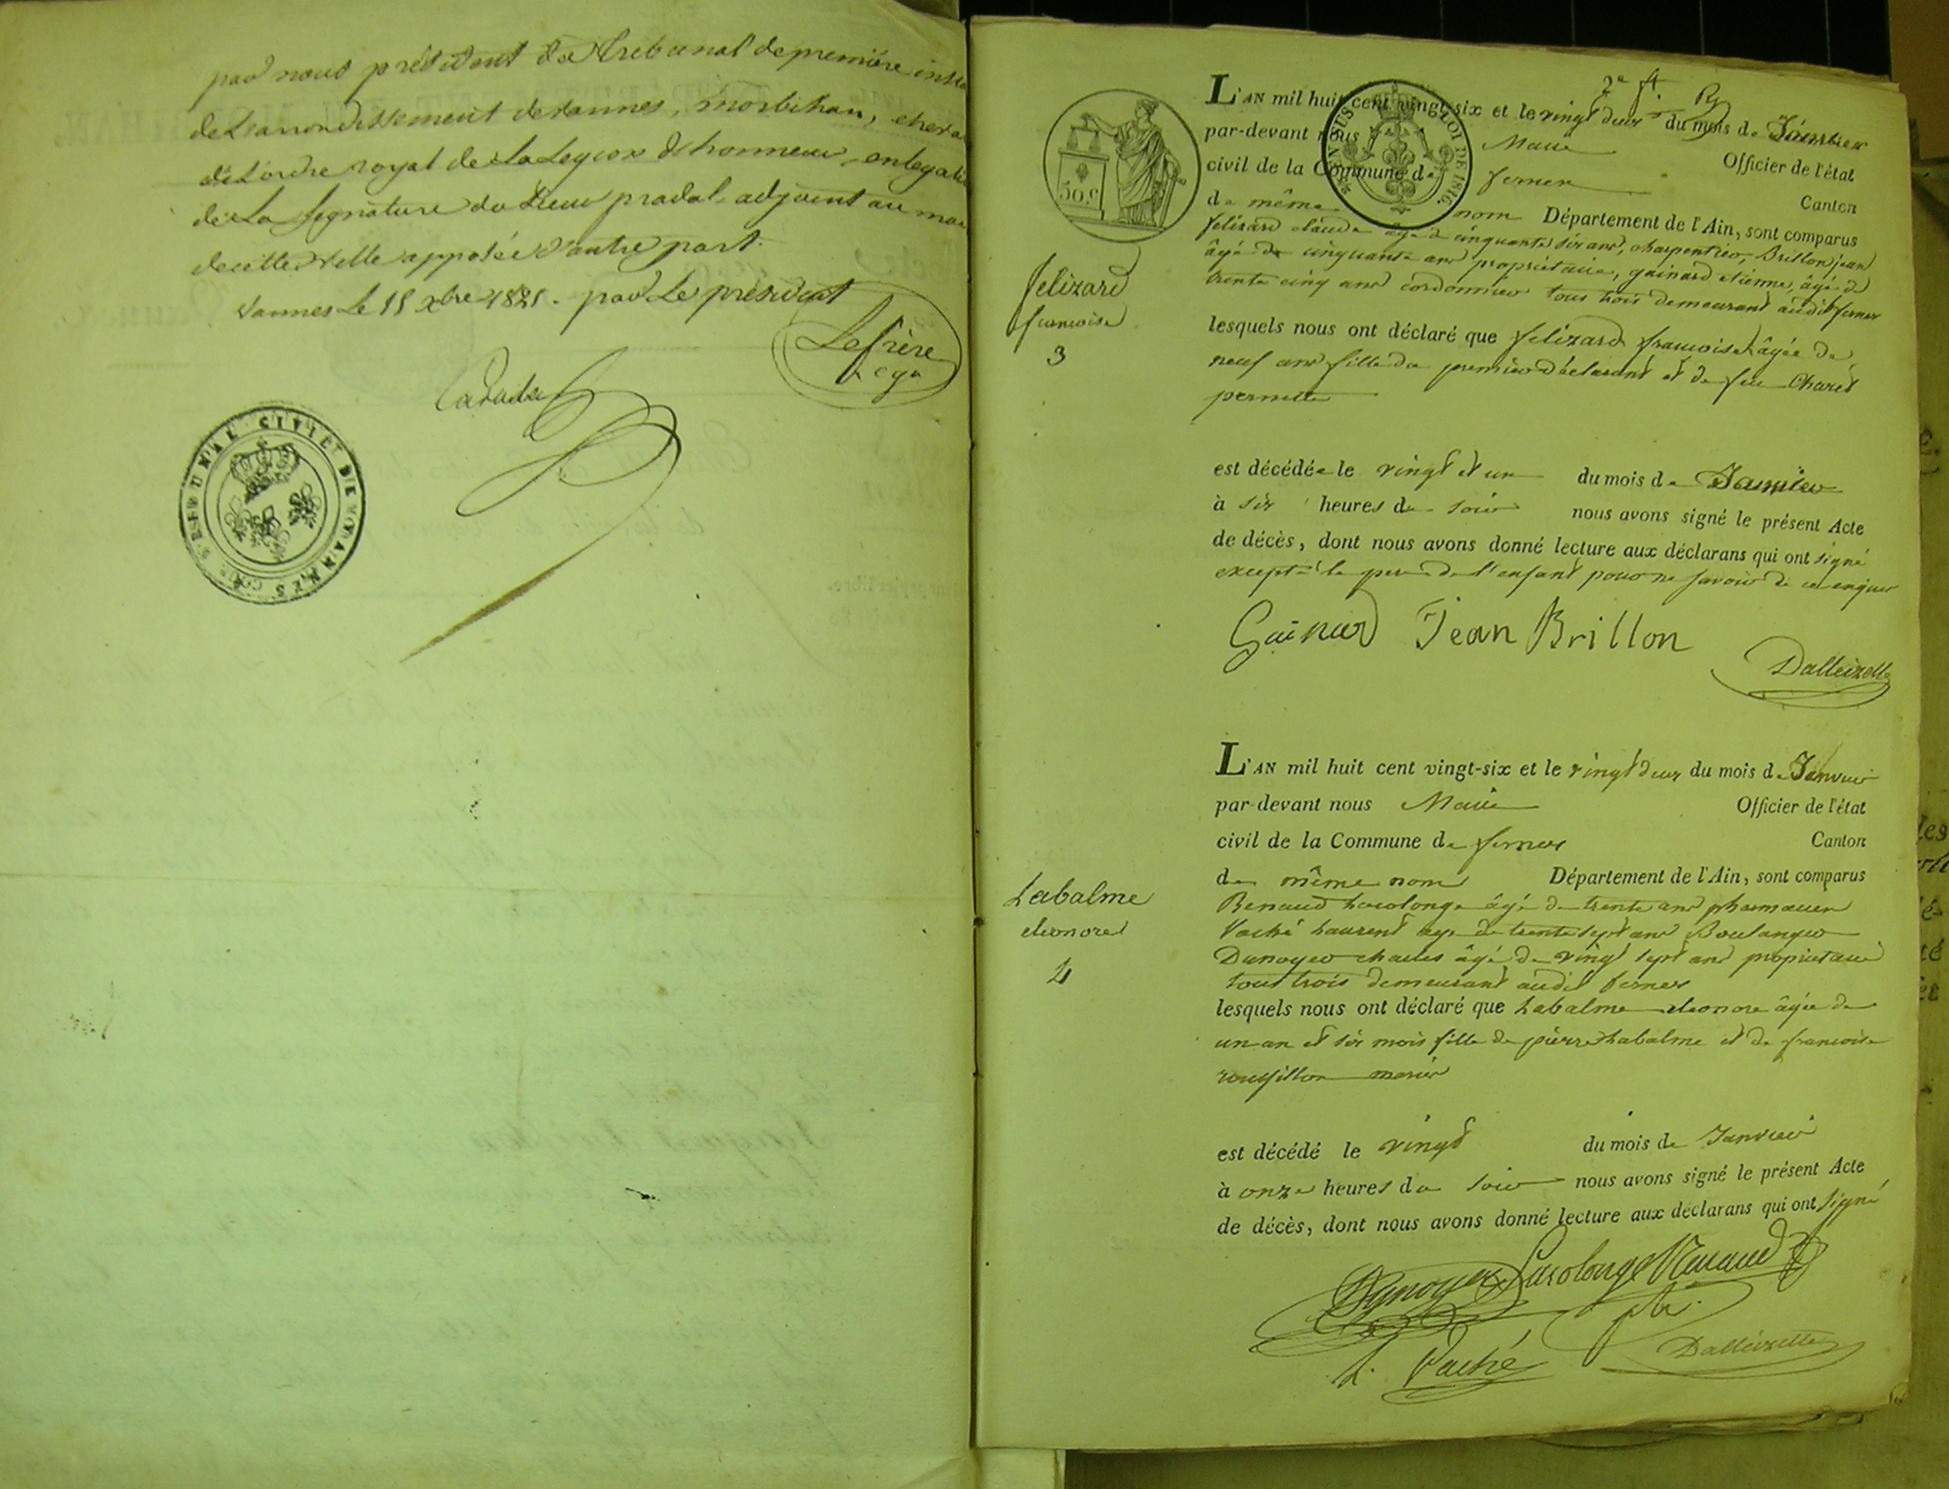 par nous président du tribunal de première insta
de l'arrondissement de vannes, morbihan, cheva
de L'ordre royal de la Legion d'honneur, en legali
de La signature du Sieur pradal, adjoint au mai
de cette ville apposée d'autre part.
vannes Le 15 xbre 1825. par Le président
Lefrère
TRIBUNAL CIVIL DE VANNES
2e f.
L'AN mil huit cent vingt-six et le vingt deux du mois de Janvier
par-devant nous Maire Officier de l'état
civil de la Commune de ferney Canton
de même nom Département de l'Ain, sont comparus
50.c
LOI DE 1816.
felizard claude âgé de cinquante six ans, charpentier, Brillon jean
âgé de cinquante ans propriétaire, gainard etienne, âgé de
trente cinq ans cordonnier tous trois demeurant audit ferney
felizard
francoise
3
lesquels nous ont déclaré que felizard francoise âgée de
neuf ans fille du premier déclarant et de feu Charet
pernette
est décédée le vingt et un du mois de Janvier
à six heures du soir nous avons signé le présent Acte
de décès, dont nous avons donné lecture aux déclarans qui ont signé
excepté le pere de l'enfant pour ne savoir de ce enquis
Gainard Jean Brillon
Dalleizette
L'AN mil huit cent vingt-six et le vingt deux du mois de Janvier
par-devant nous Maire Officier de l'état
civil de la Commune de ferney Canton
de même nom Département de l'Ain, sont comparus
Labalme
eleonore
4
Renaud Lacolonge âgé de trente ans pharmacien
Vaché Laurent age de trente sept ans Boulanger
Dunoyer charles âgé de vingt sept ans propriétaire
tous trois demeurant audit ferney
lesquels nous ont déclaré que Labalme eleonore âgée de
un an et six mois fille de pierre Labalme et de francoise
roussillon mariés
est décédé le vingt du mois de Janvier
à onze heures du soir nous avons signé le présent Acte
de décès, dont nous avons donné lecture aux déclarans qui ont signé
Dunoyer Lacolonge Renaud
ph.
L. Vaché Dalleizette